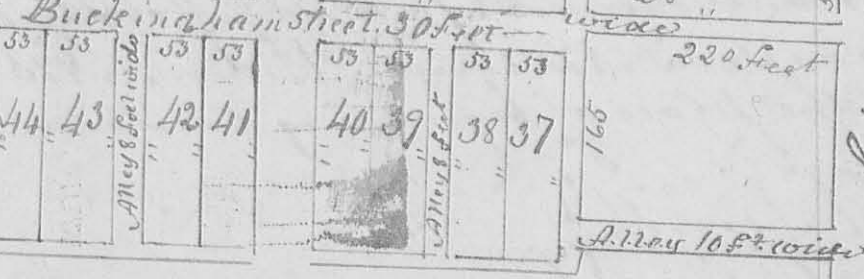 Buckingham street 30 feet wide
53 53 53 53 53 53 53 53 220 feet
44 43 Alley 8 feet wide 42 41 40 39 Alley 8 feet 38 37 165
Alley 10 ft wide